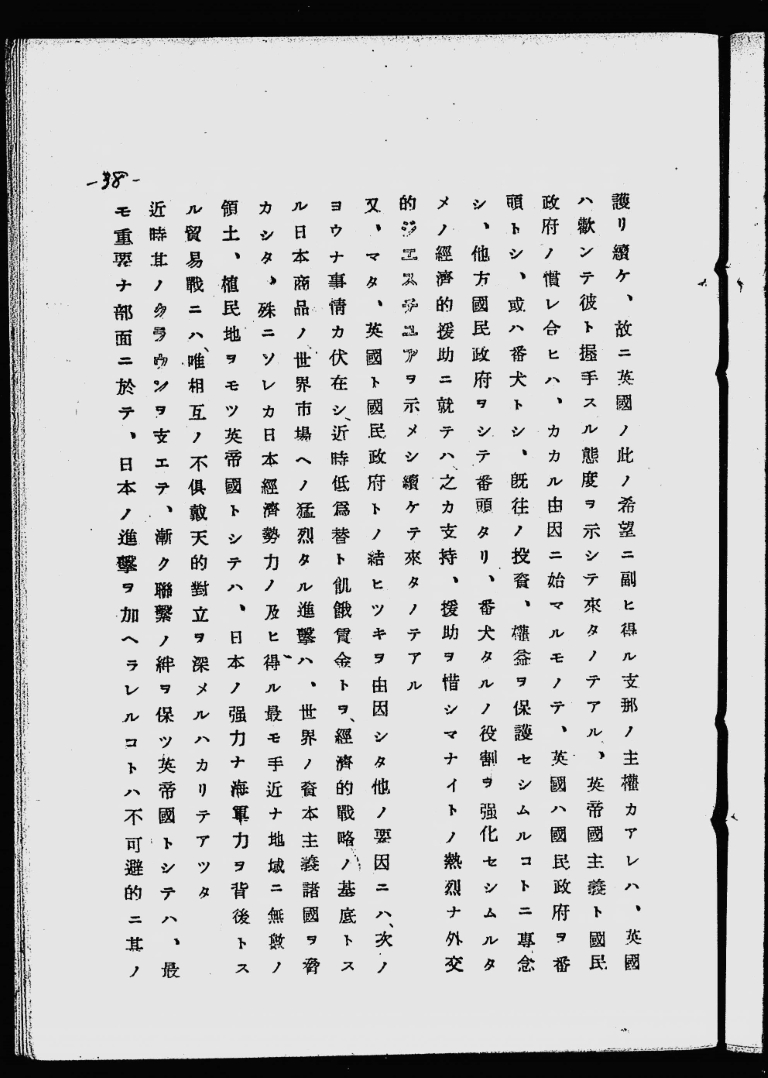 -38-
護リ續ケ、故ニ英國ノ此ノ希望ニ副ヒ得ル支那ノ主權カアレハ、英國
ハ歡ンテ彼ト握手スル態度ヲ示シテ來タノテアル、英帝國主義ト國民
政府ノ慣レ合ヒハ、カカル由因ニ始マルモノテ、英國ハ國民政府ヲ番
頭トシ、或ハ番犬トシ、既往ノ投資、權益ヲ保護セシムルコトニ專念
シ、他方國民政府ヲシテ番頭タリ、番犬タルノ役割ヲ强化セシムルタ
メノ經濟的援助ニ就テハ之カ支持、援助ヲ惜シマナイトノ熱烈ナ外交
的ジエスチユアヲ示メシ續ケテ來タノテアル
又、マタ、英國ト國民政府トノ結ヒツキヲ由因シタ他ノ要因ニハ、次ノ
ヨウナ事情カ伏在シ、近時低爲替ト飢餓賃金トヲ、經濟的戰略ノ基底トス
ル日本商品ノ世界市場ヘノ猛烈タル進擊ハ、世界ノ資本主義諸國ヲ脅
カシタ、殊ニソレカ日本經濟勢力ノ及ヒ得ル最モ手近ナ地域ニ無數ノ
領土、植民地ヲモツ英帝國トシテハ、日本ノ强力ナ海軍力ヲ背後トス
ル貿易戰ニハ、唯相互ノ不俱戴天的對立ヲ深メルハカリテアツタ
近時其ノクラウンヲ支エテ、漸ク聯繫ノ絆ヲ保ツ英帝國トシテハ、最
モ重要ナ部面ニ於テ、日本ノ進擊ヲ加ヘラレルコトハ不可避的ニ其ノ